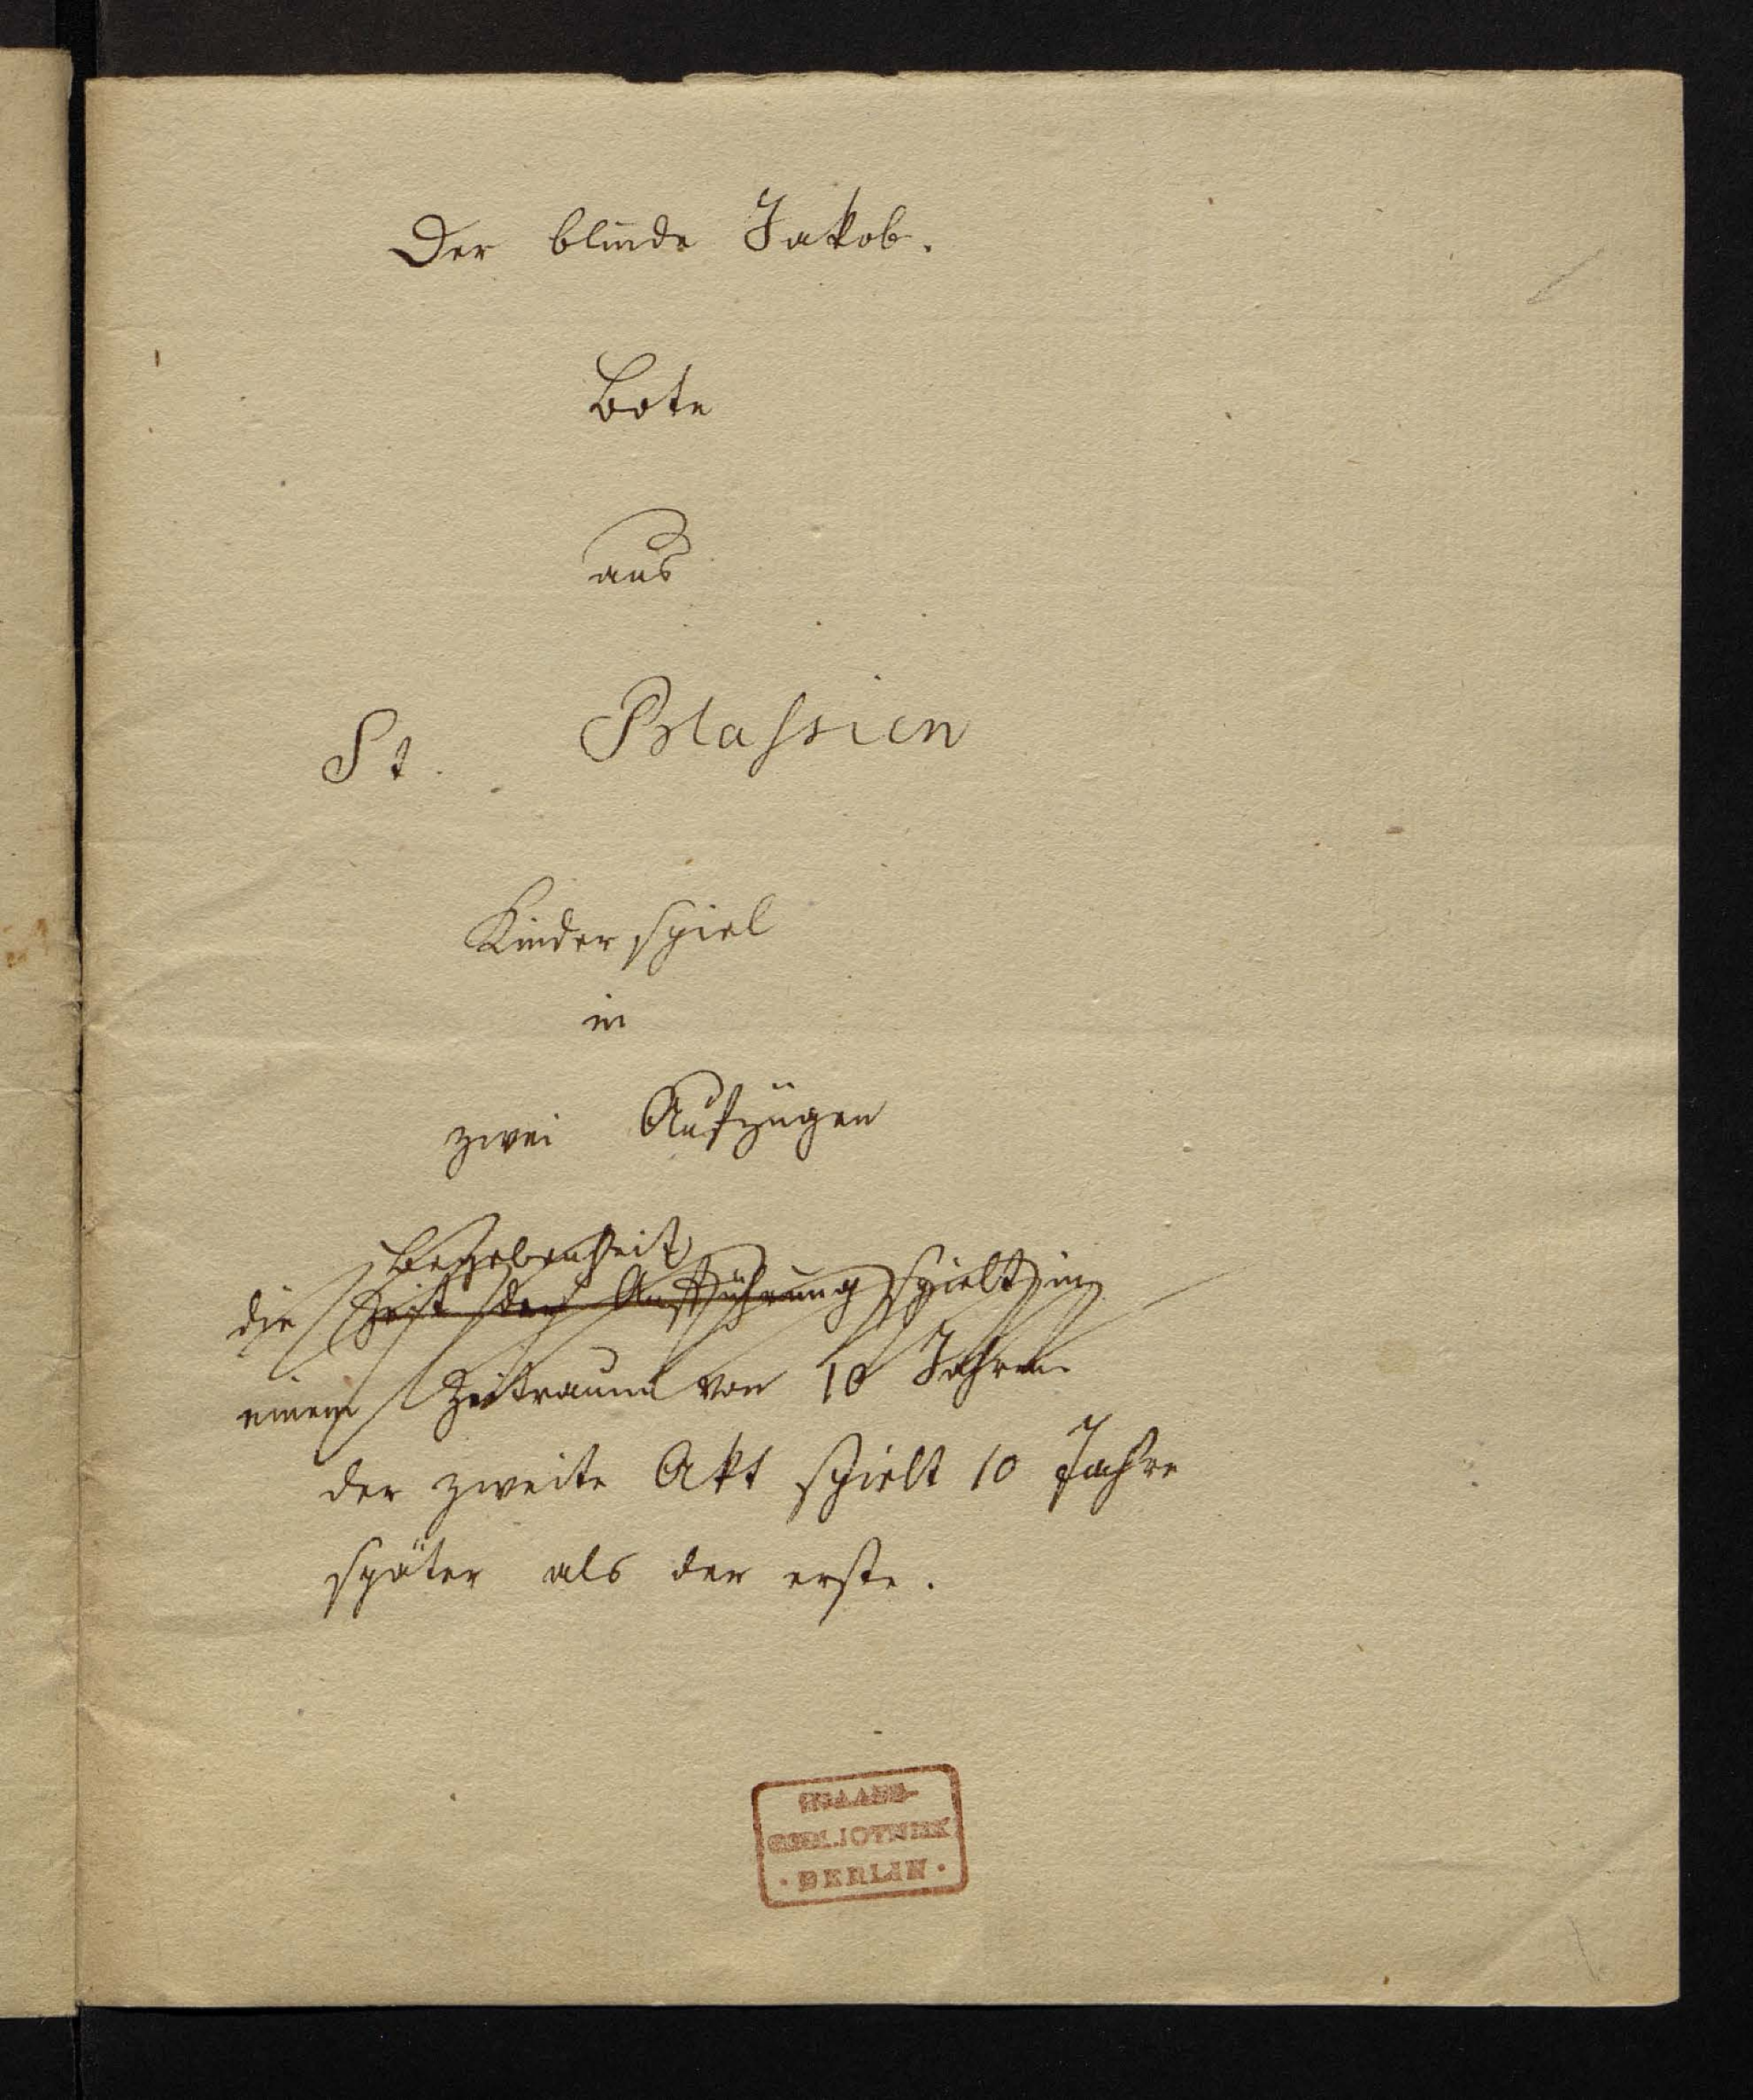 Der blinde Jakob.
Bote
aus
St. Blassien
Kinderspiel
in
zwei Aufzügen
Begebenheit
die Zeit der Aufführung spielt in
einem Zeitraum von 10 Jahren
der zweite Akt spielt 10 Jahre
später als der erste.
STAATS-
BIBLIOTHEK
· BERLIN ·